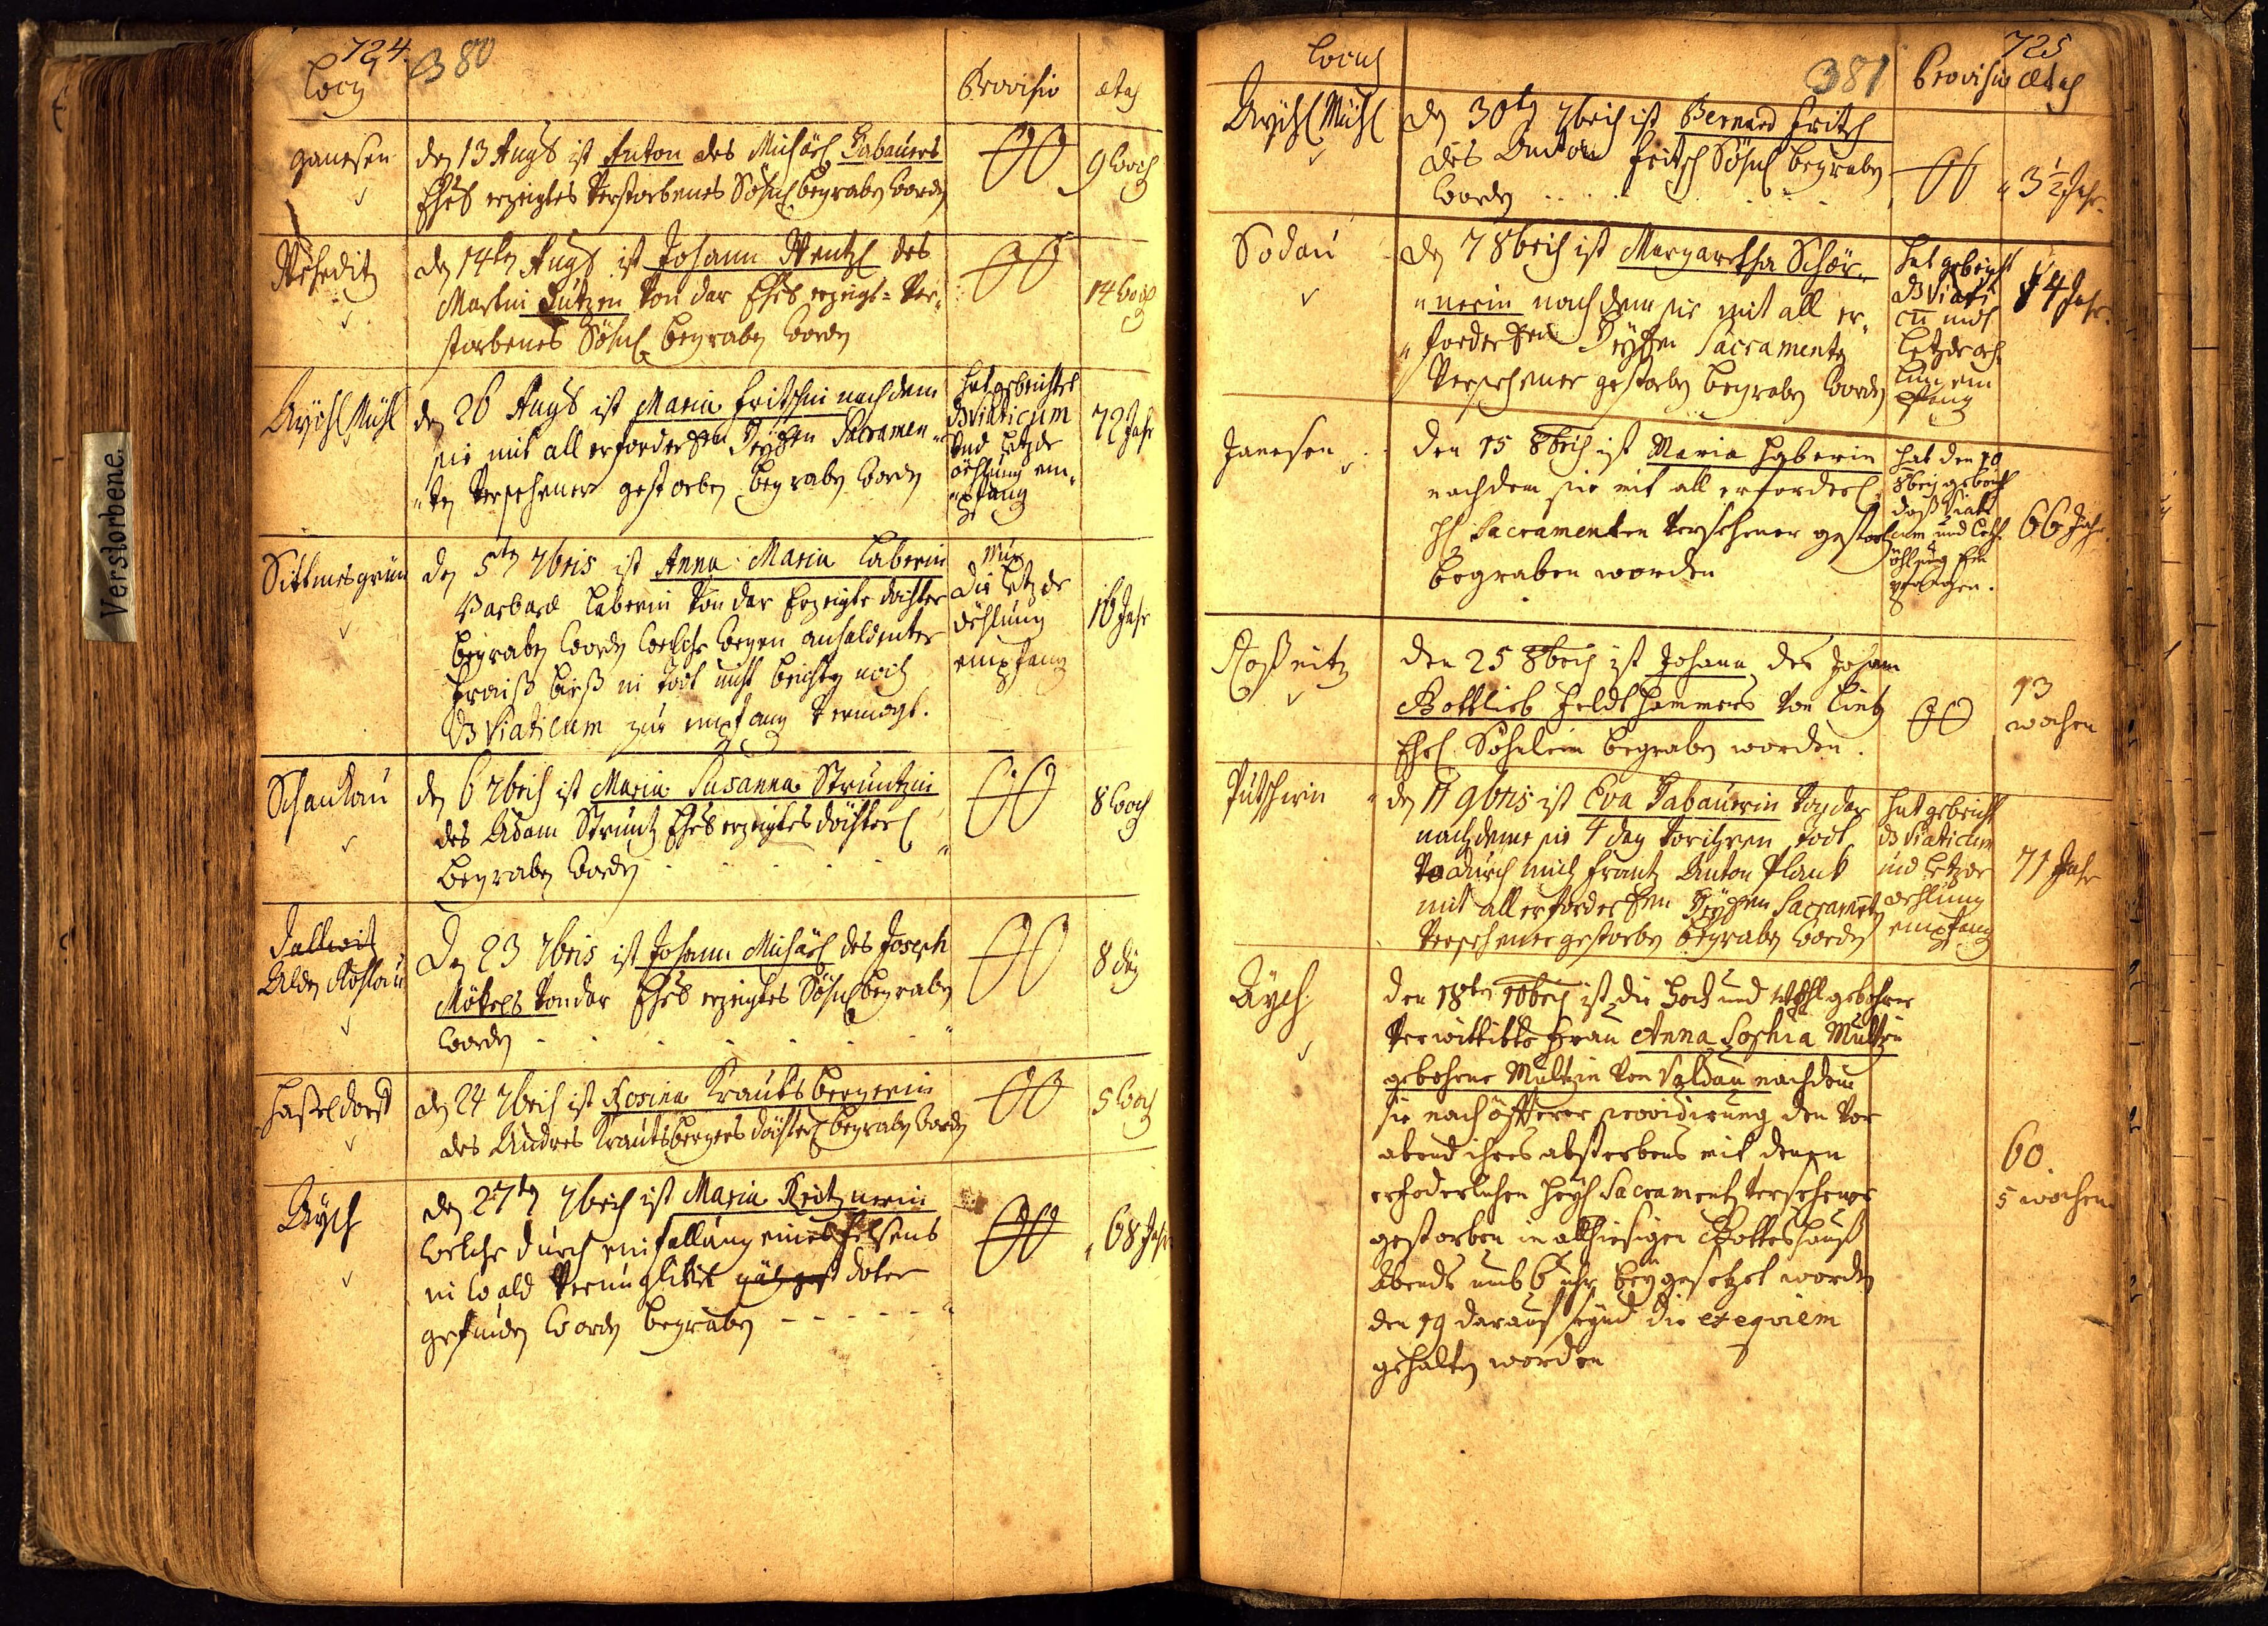 Verstorbene.
724
380
Locus
Provisio
ætas
ganesen
den 13 Augs ist Anton des Michäel Habauers
Ehes erzeigtes Verstorbenes Söhnl begraben worden
9 Woch
Weheditz
den 14ten Augs ist Johann Wentzl des
Martin Lutzen von dar Ehes erzeigt= Ver=
storbenes Söhnl begraben worden
14 Woch
Aychl Mühl
den 26 Augs ist Maria Fritschin nach dem
sie mit all erforder Heyl Sacramen
ten Versehener gestorben begraben worden
hat gebeichtet
Viaticum
und Letzde
öehlung em
pfang
72 Jahr
Sittmesgrün
den 5ten 7bris ist Anna Maria Laberin
Barbaræ Laberin Von dar Erzeigte dochter
begraben worden welche wegen anhaldenter
Fraiß biß in todt nicht beichten noch
Viaticum zur empfang Vermogt.
Nur
die Letzde
öehlung
empfang
16 Jahr
Schankau
den 6 7bris ist Maria Susanna Struntzin
des Adam Struntz Ehes erzeigtes döchterl
begraben worden
8 Woch
Dallwitz
Alden Rohlau
Den 23 7bris ist Johann Michäel des Joseph
Möckels Von dar Ehes erzeigtes Söhnl begraben
worden
8 däg
Haseldorf
den 24 7bris ist Rosina Krautsbergerin
des Andres Krautsbergers döchterl begraben worden
5 Woch
Aych
den 27ten 7bris ist Maria Reitznerin
welche durch einfallung eines Felsens
in wald Verunglikt doter
gefunden worden begraben
68 Jahr
Locus
381
725
Provisio
ætas
Aychl Mühl
den 30ten 7bris ist Bernard Fritsch
des Anton Fritsch Söhnl begraben
worden
3 1/2 Jahr.
Sodau
den 7 8bris ist Margaretha Schör
nerin nach dem sie mit all er
forder Heyl Sacramenten
Versehener gestorben begraben worden
hat gebeicht
Viati
cu und
Letzde öeh
lung em
pfang
4 Jahr.
Janesen
Den 15 8bris ist Maria Haberin
nachdem sie mit all erforderl
Hl Sacramenten Versehener gestorben
begraben worden
hat den 10
8bris gebeicht
daß Viati
cum und Letz
öhlung em
pfangen.
66 Jahr.
Roßnitz
Den 25 8bris ist Johann des Johann
Gottlieb Feldthammers Von Lintz
Ehel Söhnlein begraben worden.
13
wochen
Putschirn
den 11 9bris ist Eva Habauerin Von dar
nachdeme sie 4 dag vor ihren todt
durch mich Frantz Anton Plank
mit all erforder Heyl Sacrament
Versehener gestorben begraben worden
hat gebeicht
Viaticum
und Letzde
öehlung
empfang
71 Jahr
Aych
Den 18ten 10bris ist die Hoch und Wohl gebohrne
Verwittibte Frau Anna Sophia Multzin
gebohrne Multzin Von Valdau nachdeme
sie nach öffterer providirung den Vor
abend ihres absterbens mit denen
erforderlichen Heyl Sacramenten Versehener
gestorben in allhiesigen Gotteshauß
Abends umb 6 uhr beygesetzet worden
den 19 darauf seynd die exequiem
gehalten worden
60.
5 wochen